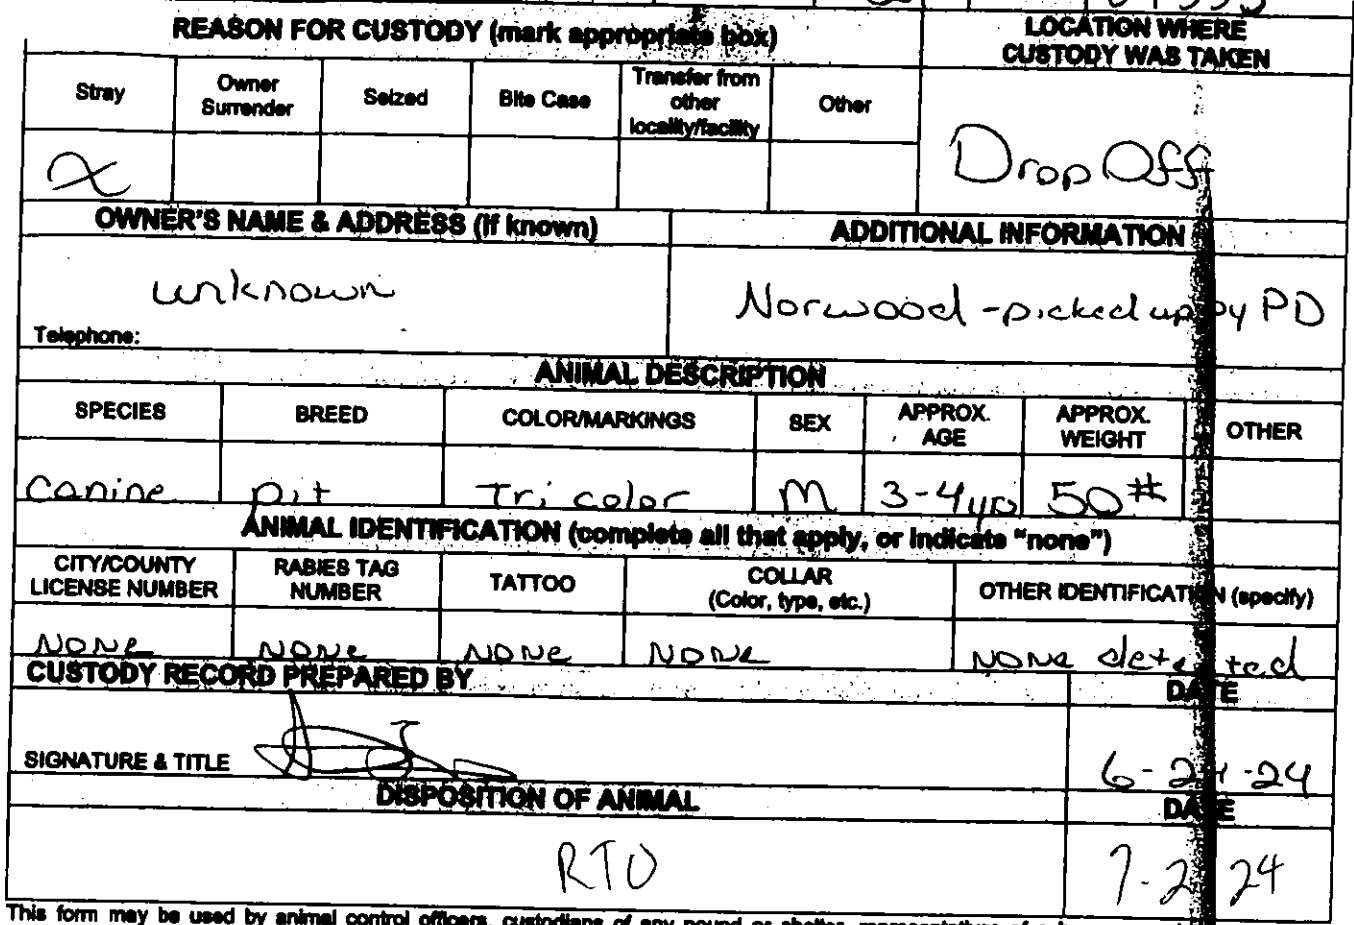 REASON FOR CUSTODY (mark appropriate box)
LOCATION WHERE
CUSTODY WAS TAKEN
Stray
Owner
Surrender
Seized
Bite Case
Transfer from
other
locality/facility
Other
X
Drop Off
OWNER'S NAME & ADDRESS (if known)
ADDITIONAL INFORMATION
unknown
Norwood - picked up by PD
Telephone:
ANIMAL DESCRIPTION
SPECIES
BREED
COLOR/MARKINGS
SEX
APPROX.
AGE
APPROX.
WEIGHT
OTHER
canine
pit
Tri color
M
3-4yo
50#
ANIMAL IDENTIFICATION (complete all that apply, or indicate "none")
CITY/COUNTY
LICENSE NUMBER
RABIES TAG
NUMBER
TATTOO
COLLAR
(Color, type, etc.)
OTHER IDENTIFICATION (specify)
NONE
NONE
NONE
NONE
NONE detected
CUSTODY RECORD PREPARED BY
DATE
SIGNATURE & TITLE
6-24-24
DISPOSITION OF ANIMAL
DATE
RTO
7-2 24
This form may be used by animal control officers, custodians of any pound or shelter,